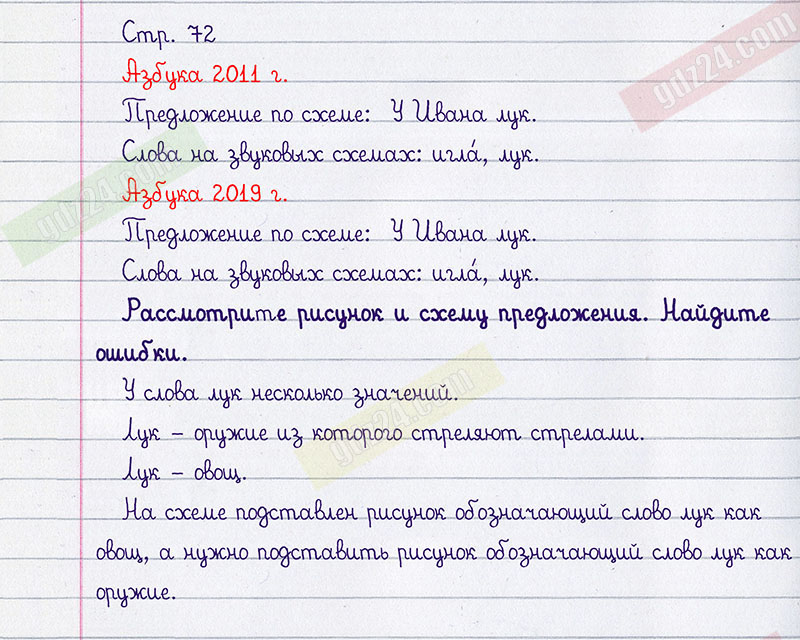 Стр. 72
Азбука 2011 г.
Предложение по схеме: У Ивана лук.
Слова на звуковых схемах: игла́, лук.
Азбука 2019 г.
Предложение по схеме: У Ивана лук.
Слова на звуковых схемах: игла́, лук.
Рассмотрите рисунок и схему предложения. Найдите
ошибки.
У слова лук несколько значений.
Лук – оружие из которого стреляют стрелами.
Лук – овощ.
На схеме подставлен рисунок обозначающий слово лук как
овощ, а нужно подставить рисунок обозначающий слово лук как
оружие.
gdz24.com
gdz24.com
gdz24.com